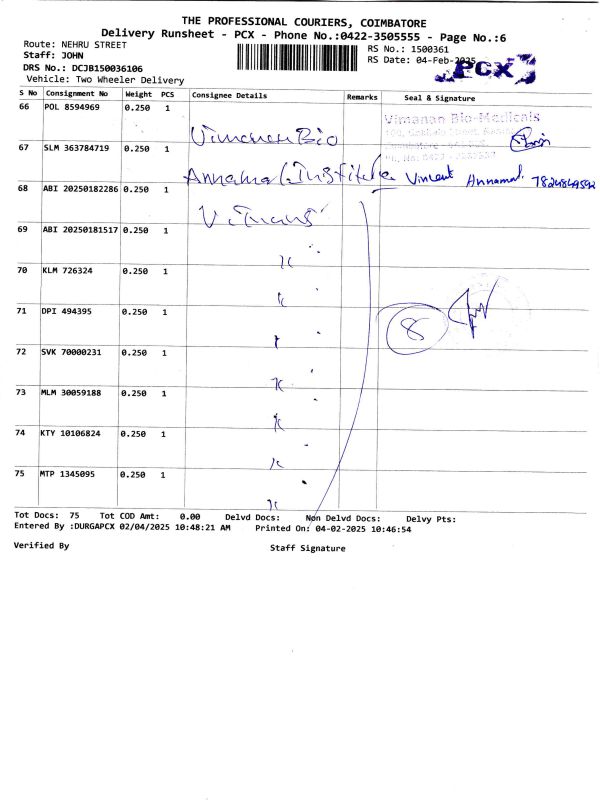 THE PROFESSIONAL COURIERS, COIMBATORE
Delivery Runsheet - PCX - Phone No.:0422-3505555 - Page No.:6
Route: NEHRU STREET
RS No.: 1500361
Staff: JOHN
RS Date: 04-Feb-2025
DRS No.: DCJB150036106
PCX
Vehicle: Two Wheeler Delivery
S No Consignment No Weight PCS Consignee Details Remarks Seal & Signature
66 POL 8594969 0.250 1 Vimanan Bio
Vimanan Bio-Medicals
67 SLM 363784719 0.250 1 Annamal Institute Vincent Annamal
68 ABI 20250182286 0.250 1
69 ABI 20250181517 0.250 1
70 KLM 726324 0.250 1
71 DPI 494395 0.250 1 8
72 SVK 70000231 0.250 1
73 MLM 30059188 0.250 1
74 KTY 10106824 0.250 1
75 MTP 1345095 0.250 1
Tot Docs: 75 Tot COD Amt: 0.00 Delvd Docs: Non Delvd Docs: Delvy Pts:
Entered By :DURGAPCX 02/04/2025 10:48:21 AM Printed On: 04-02-2025 10:46:54
Verified By Staff Signature